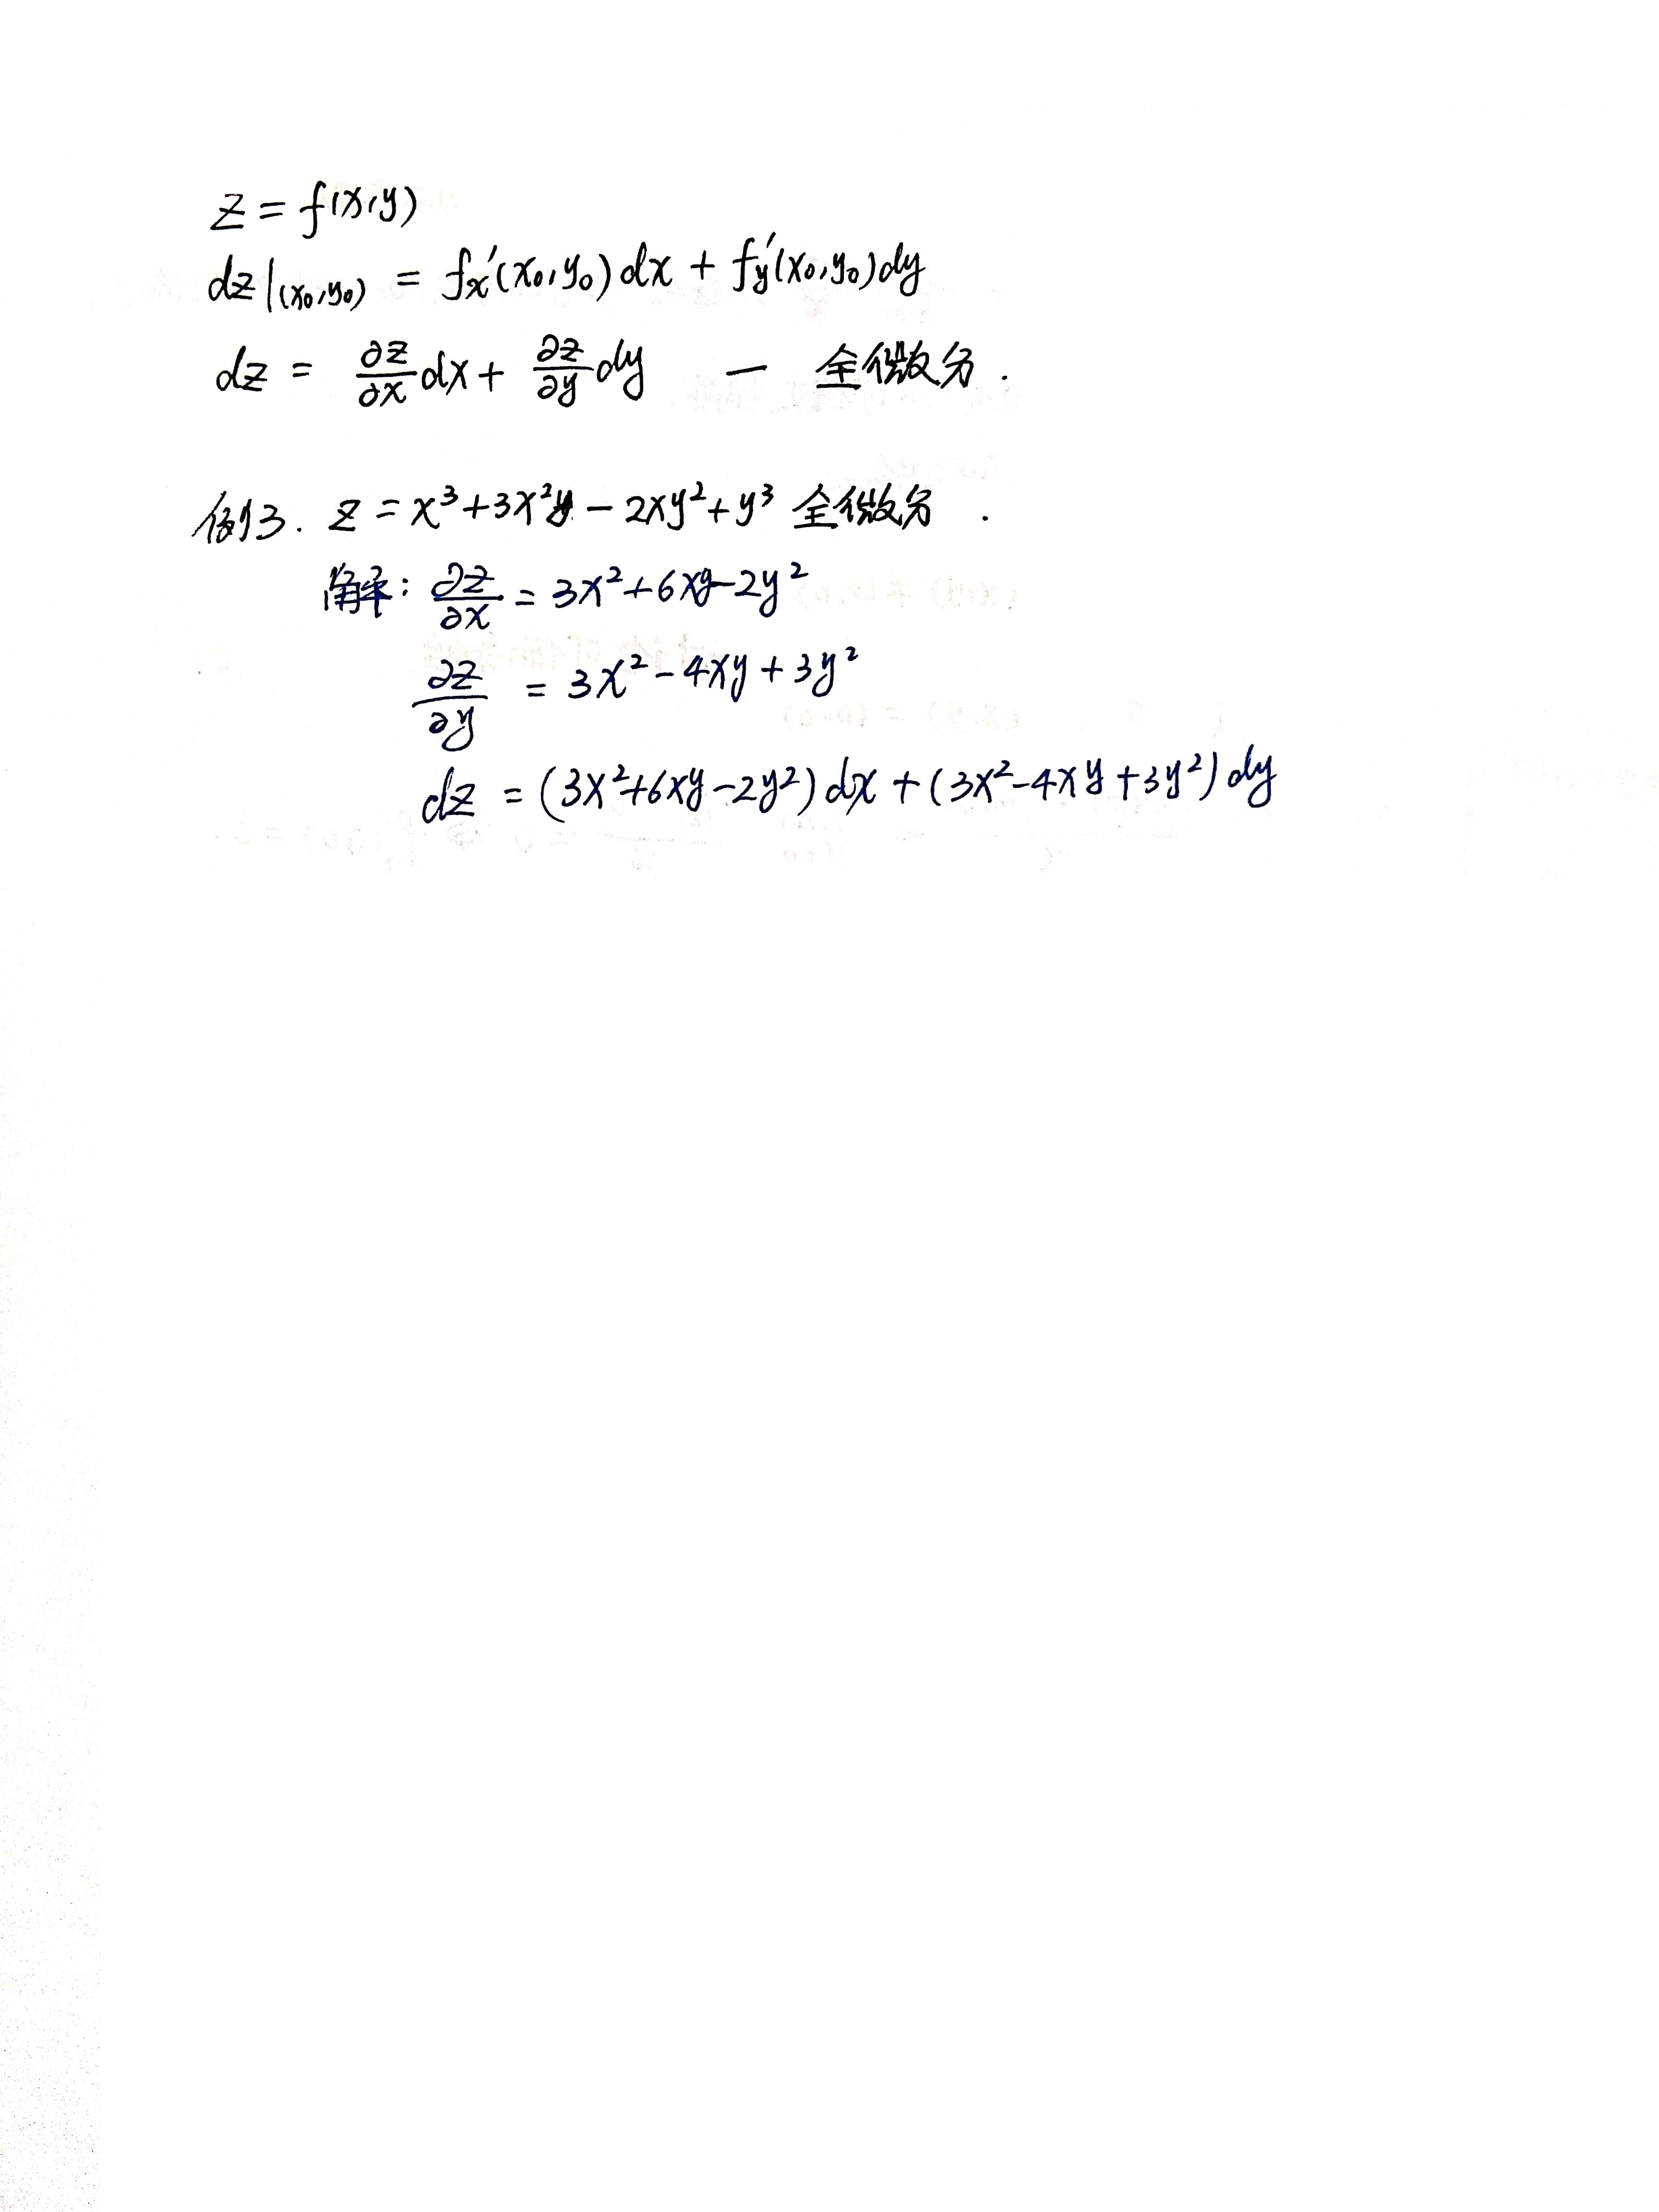 z = f(x,y)
dz|(x₀,y₀) = fx′(x₀,y₀)dx + fy′(x₀,y₀)dy
dz = ∂z/∂x dx + ∂z/∂y dy — 全微分.
例3. z = x³+3x²y − 2xy²+y³ 全微分.
解: ∂z/∂x = 3x²+6xy−2y²
∂z/∂y = 3x²−4xy+3y²
dz = (3x²+6xy−2y²)dx + (3x²−4xy+3y²)dy